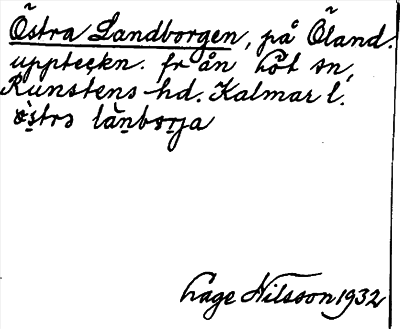 Östra Landborgen, på Öland.
uppteckn. från Löt sn,
Runstens hd. Kalmar l.
östrs länbơrja
Lage Nilsson 1932